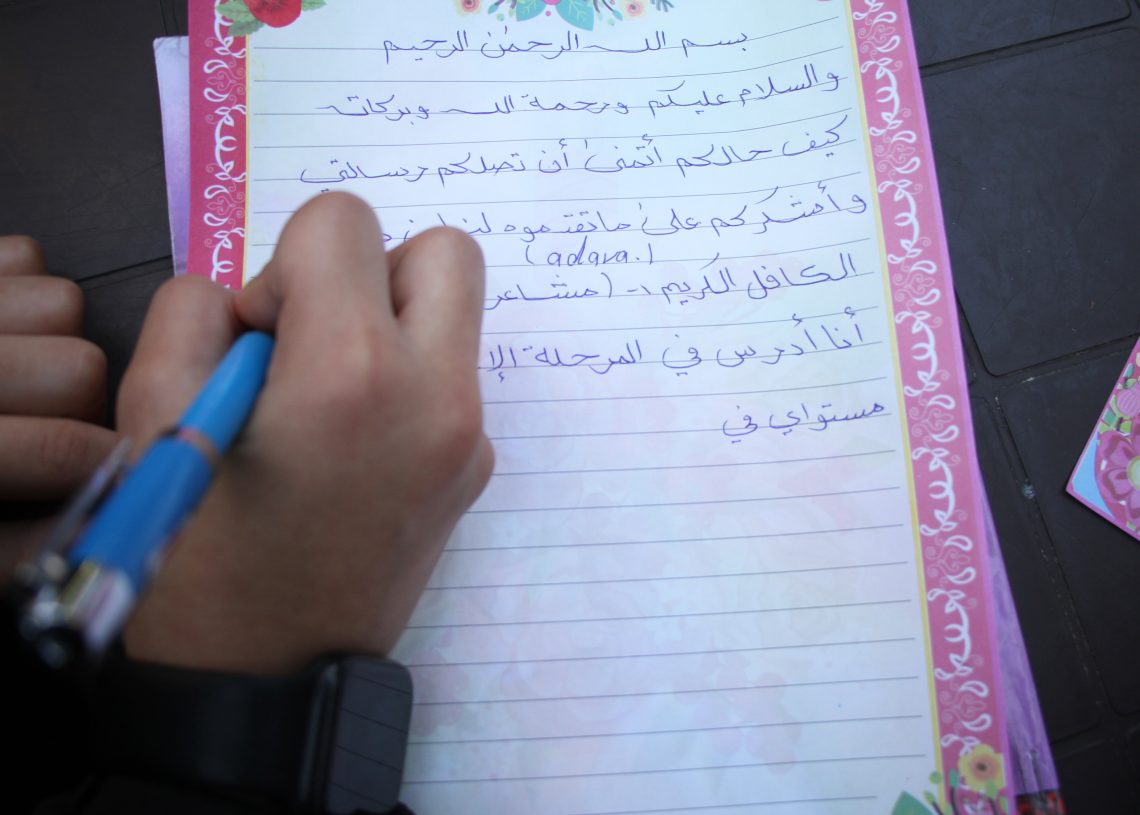 بسم الله الرحمٰن الرحيم
والسلام عليكم ورحمة الله وبركاته
كيف حالكم أتمنىٰ أن تصلكم رسالتي
وأشكركم علىٰ ماتقدموه لنا
(adara.)
الكافل الكريم :- (مشاعر
أنا أدرس في المرحلة الإ
مستواي في